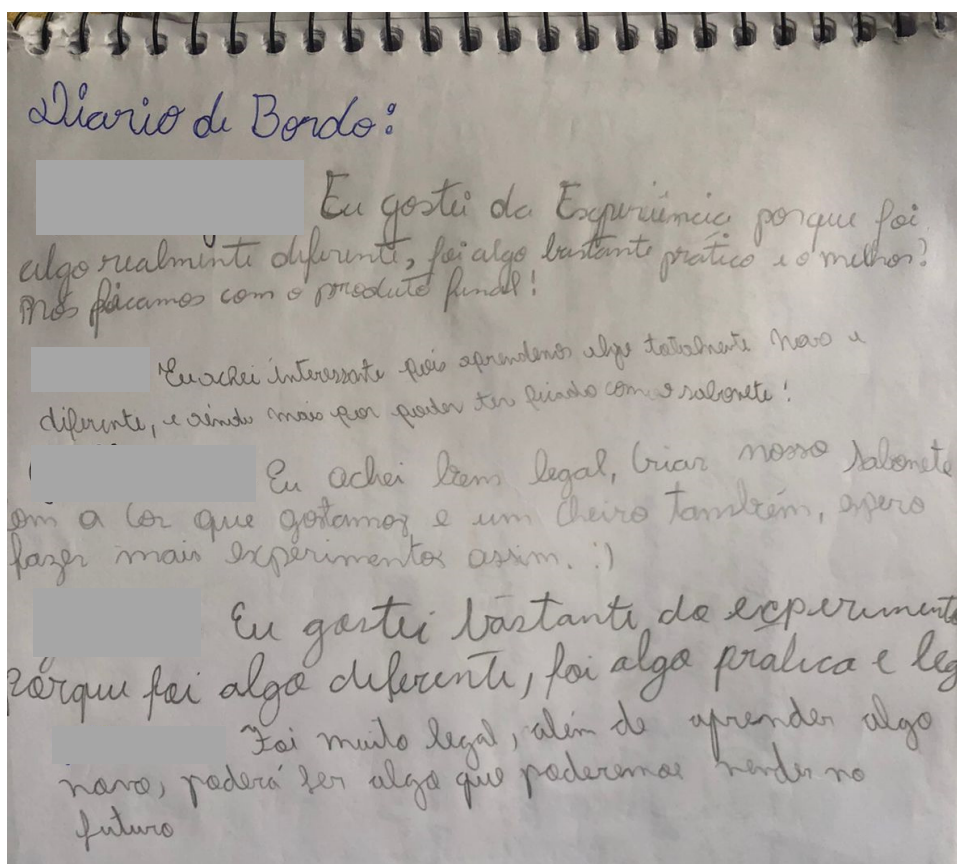 Diario de Bordo:
Eu gostei da Experiência porque foi
algo realmente diferente, foi algo bastante prático e o melhor?
Nós ficamos com o produto final!
Eu achei interessante pois aprendemos algo totalmente novo e
diferente, e ainda mais por poder ter ficado com o sabonete!
Eu achei bem legal, criar nosso sabonete
om a cor que gostamos e um cheiro também, espero
fazer mais experimentos assim. :)
Eu gostei bastante do experiment
Porque foi algo diferente, foi algo pratica e leg
Foi muito legal, além de aprender algo
novo, poderá ser algo que poderemos vender no
futuro